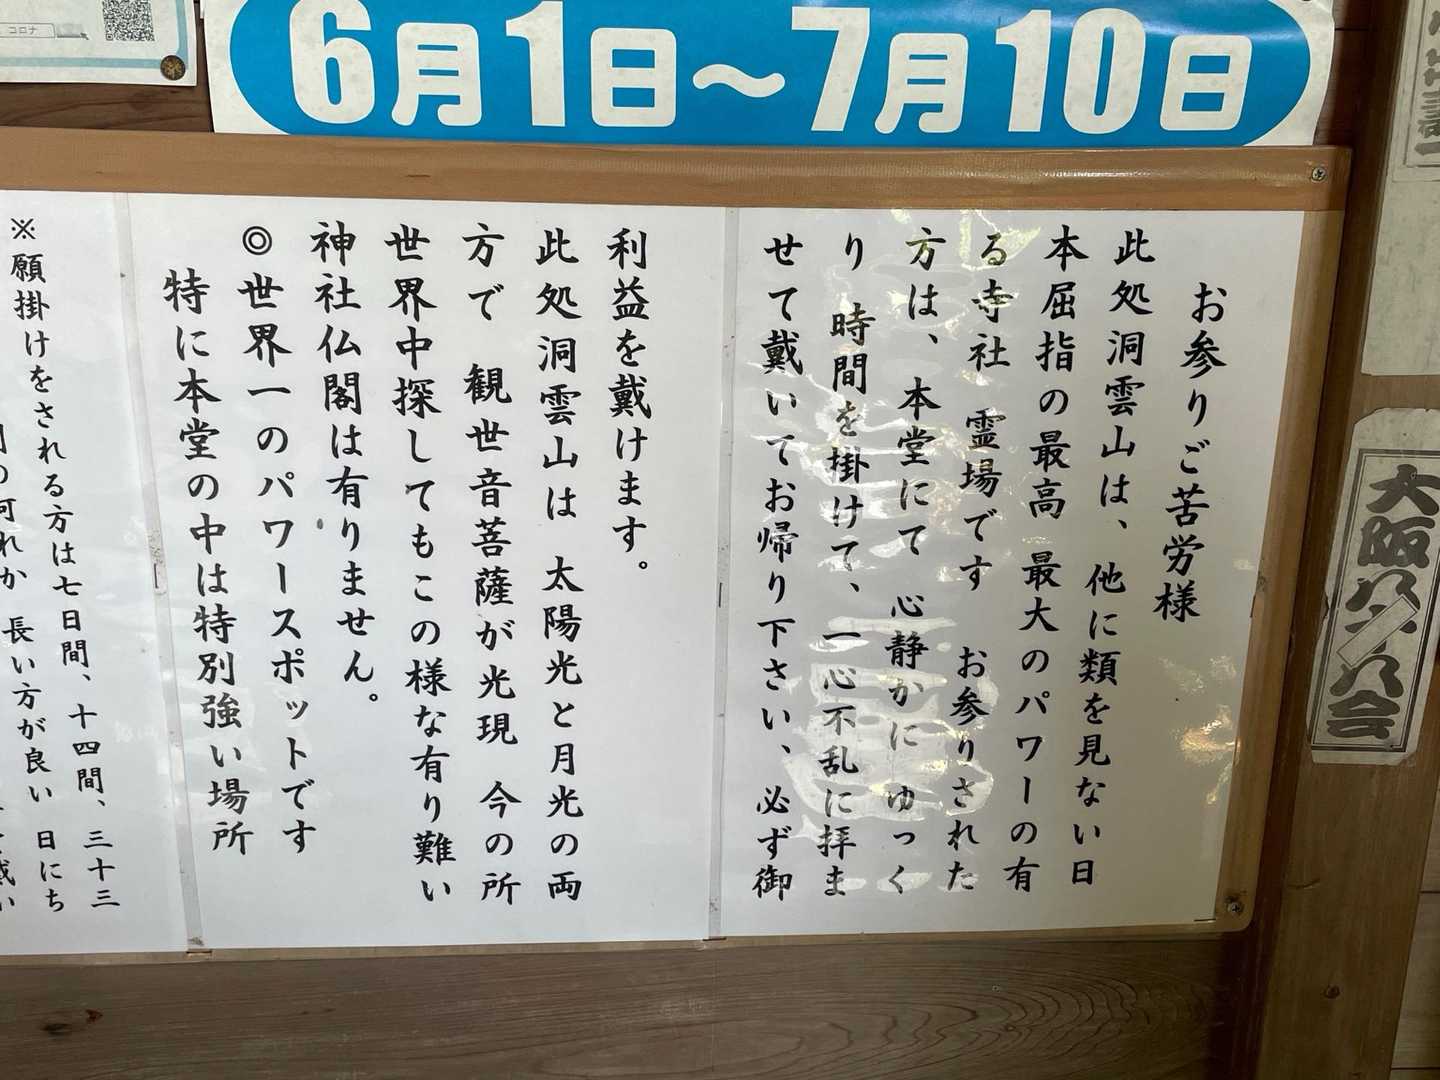 コロナ
6月1日〜7月10日
お参りご苦労様
此処洞雲山は、他に類を見ない日
本屈指の最高 最大のパワーの有
る寺社 霊場です お参りされた
方は、本堂にて 心静かに ゆっく
り 時間を掛けて、一心不乱に拝ま
せて戴いてお帰り下さい、必ず御
利益を戴けます。
此処洞雲山は 太陽光と月光の両
方で 観世音菩薩が光現 今の所
世界中探してもこの様な有り難い
神社仏閣は有りません。
◎世界一のパワースポットです
特に本堂の中は特別強い場所
※願掛けをされる方は七日間、十四間、三十三
何れか 長い方が良い 日にち
大阪
会